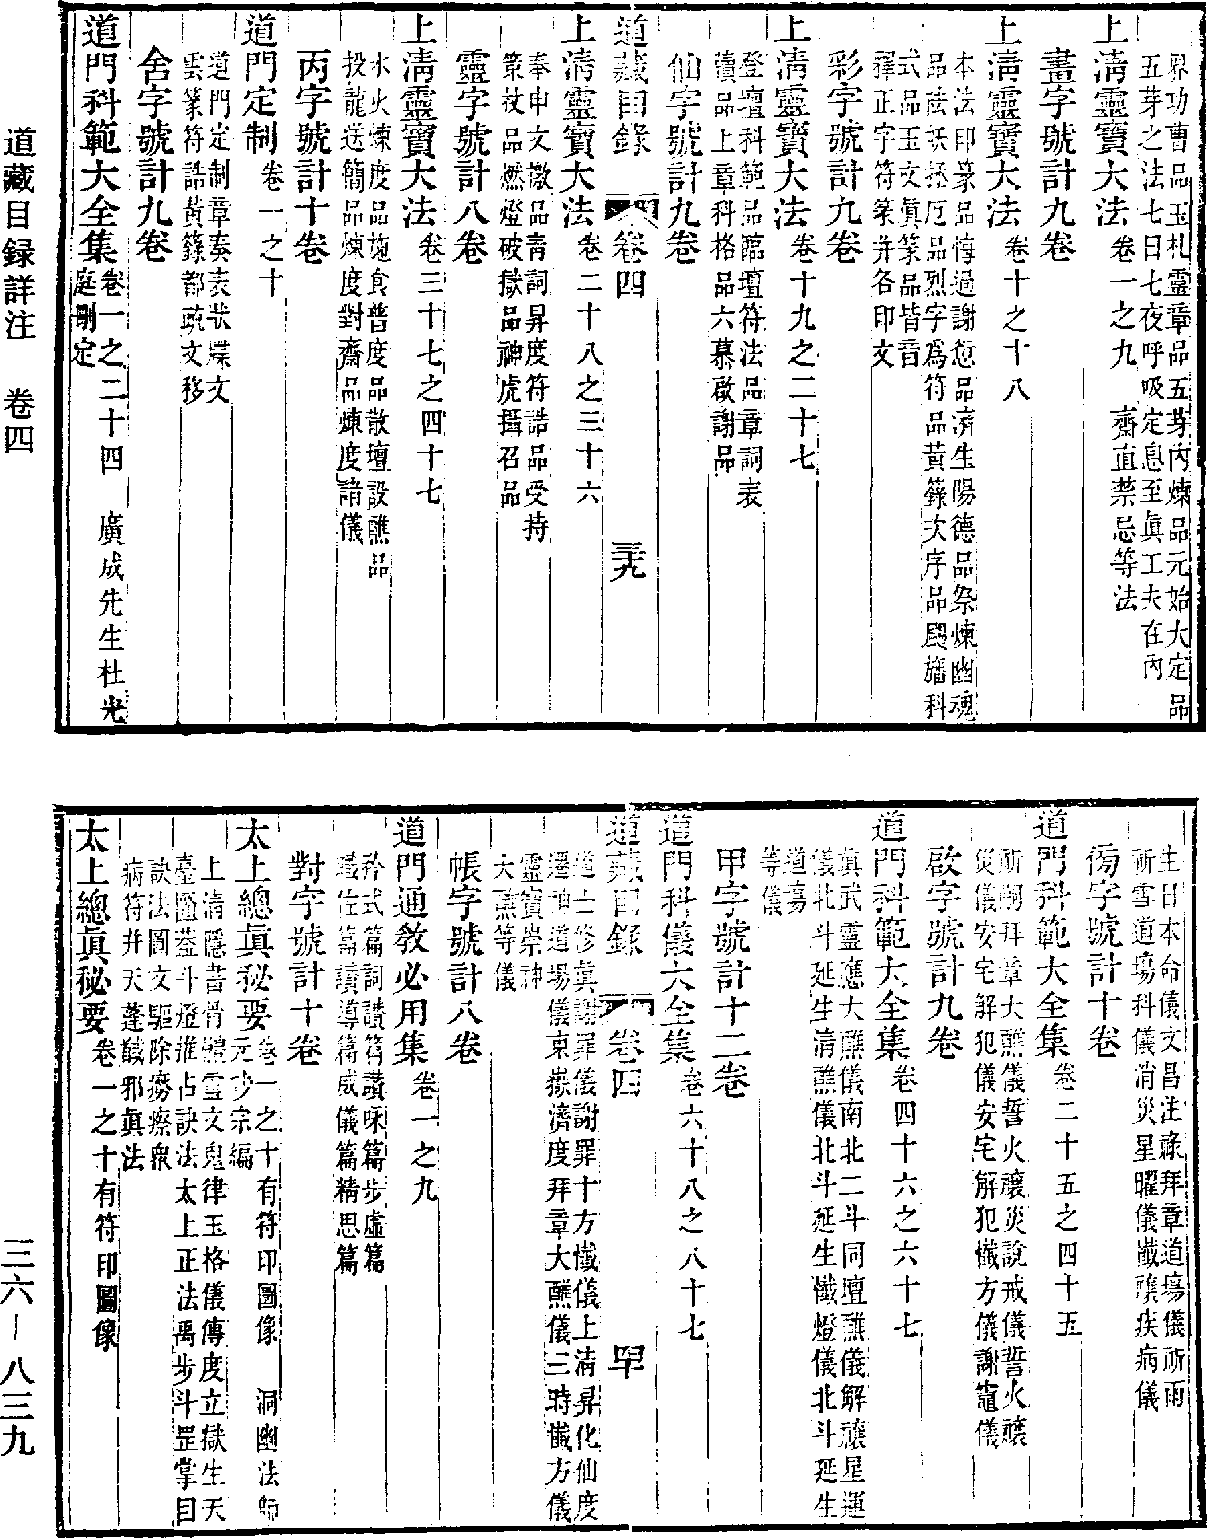 界功曹品玉札靈章品五芽內煉品元始大定品
五芽之法七日七夜呼吸定息至眞工夫在內
上淸靈寶大法卷一之九　齋直禁忌等法
畫字號計九卷
上淸靈寶大法卷十之十八
本法印篆品悔過謝愆品濟生陽德品祭煉幽魂
品祛妖拯厄品烈字爲符品黃籙次序品颺旛科
式品玉文眞篆品皆音
釋正字符篆幷各印文
彩字號計九卷
上淸靈寶大法卷十九之二十七
登壇科範品臨壇符法品章詞表
牘品上章科格品六慕啟謝品
仙字號計九卷
道藏目錄　卷四　三十九
上淸靈寶大法卷二十八之三十六
奉申文檄品靑詞昇度符誥品受持
策杖品燃燈破獄品神虎攝召品
靈字號計八卷
上淸靈寶大法卷三十七之四十七
水火煉度品施食普度品散壇設醮品
投龍送簡品煉度對齋品煉度諸儀
丙字號計十卷
道門定制卷一之十
道門定制章奏表狀牒文
雲篆符誥黃籙都疏文移
舍字號計九卷
道門科範大全集卷一之二十四　廣成先生杜光
庭刪定
生日本命儀文昌注祿拜章道場儀祈雨
祈雪道場科儀消災星曜儀懺禳疾病儀
傍字號計十卷
道門科範大全集卷二十五之四十五
祈嗣拜章大醮儀誓火禳災說戒儀誓火禳
災儀安宅解犯儀安宅解犯懺方儀謝竈儀
啟字號計九卷
道門科範大全集卷四十六之六十七
眞武靈應大醮儀南北二斗同壇醮儀解禳星運
儀北斗延生淸醮儀北斗延生懺燈儀北斗延生
道場
等儀
甲字號計十二卷
道門科儀大全集卷六十八之八十七
道藏目錄　卷四　四十
道士修眞謝罪儀謝罪十方懺儀上淸昇化仙度
遷神道場儀東嶽濟度拜章大醮儀三時懺方儀
靈寶崇神
大醮等儀
帳字號計八卷
道門通敎必用集卷一之九
矜式篇詞讚篇讚咏篇步虛篇
讚導篇威儀篇精思篇
對字號計十卷
太上總眞秘要卷一之十有符印圖像　洞幽法師
元少宗編
上淸隱書骨髓靈文鬼律玉格儀傳度立獄生天
臺圖蓋斗燈推占訣法太上正法禹步斗罡掌目
訣法圖文驅除癆瘵衆
病符幷天蓬馘邪眞法
太上總眞秘要卷一之十有符印圖像
道藏目錄詳注　卷四
三六—八三九